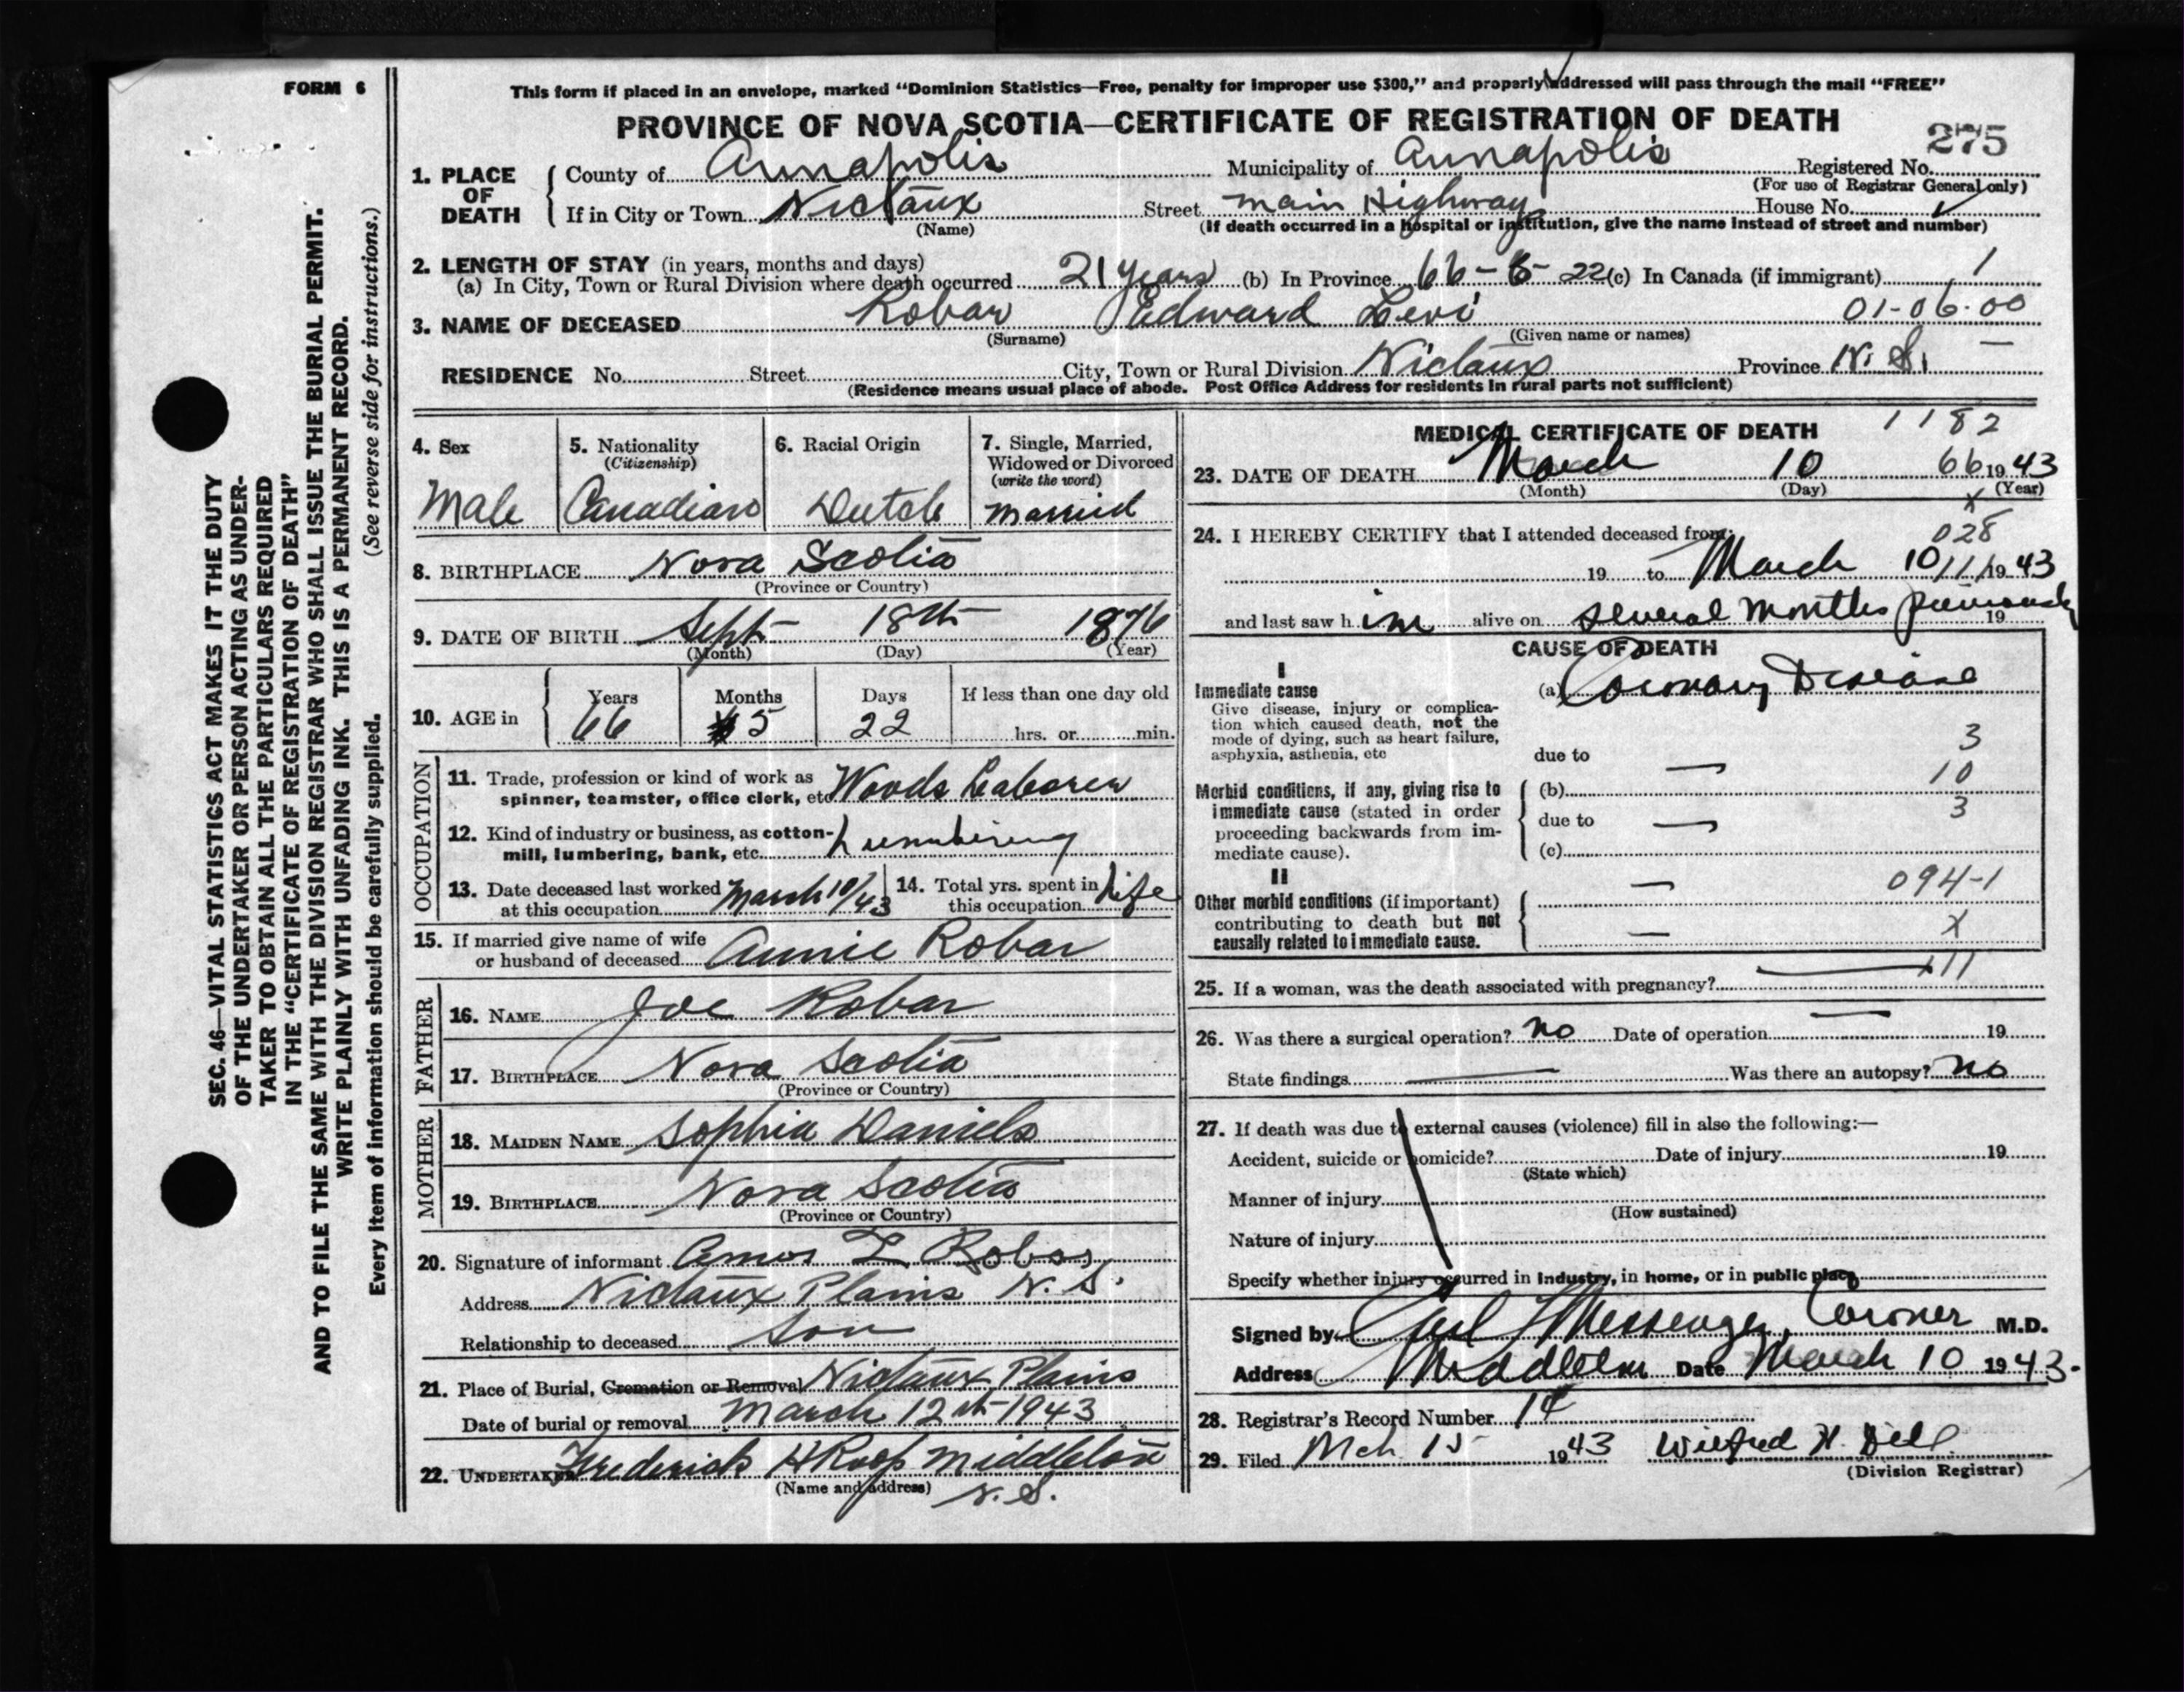 FORM 6
This form if placed in an envelope, marked "Dominion Statistics—Free, penalty for improper use $300," and properly addressed will pass through the mail "FREE"
PROVINCE OF NOVA SCOTIA—CERTIFICATE OF REGISTRATION OF DEATH
275
1. PLACE OF DEATH
County of Annapolis Municipality of Annapolis Registered No.
(For use of Registrar General only)
If in City or Town Nictaux Street Main Highway House No.
(Name) (If death occurred in a hospital or institution, give the name instead of street and number)
2. LENGTH OF STAY (in years, months and days)
(a) In City, Town or Rural Division where death occurred 21 years (b) In Province 66-5-22 (c) In Canada (if immigrant) 1
3. NAME OF DECEASED Robar Edward Levi 01-06-00
(Surname) (Given name or names)
RESIDENCE No. Street City, Town or Rural Division Nictaux Province N.S. —
(Residence means usual place of abode. Post Office Address for residents in rural parts not sufficient)
4. Sex Male
5. Nationality (Citizenship) Canadian
6. Racial Origin Dutch
7. Single, Married, Widowed or Divorced (write the word) Married
8. BIRTHPLACE Nova Scotia
(Province or Country)
9. DATE OF BIRTH Sept 18th 1876
(Month) (Day) (Year)
10. AGE in Years 66 Months 5 Days 22 If less than one day old hrs. or min.
OCCUPATION
11. Trade, profession or kind of work as spinner, teamster, office clerk, etc Woods Laborer
12. Kind of industry or business, as cotton-mill, lumbering, bank, etc. Lumbering
13. Date deceased last worked at this occupation March 10/43
14. Total yrs. spent in this occupation Life
15. If married give name of wife or husband of deceased Annie Robar
FATHER
16. NAME Joe Robar
17. BIRTHPLACE Nova Scotia
(Province or Country)
MOTHER
18. MAIDEN NAME Sophia Daniels
19. BIRTHPLACE Nova Scotia
(Province or Country)
20. Signature of informant Amos L Robar
Address Nictaux Plains N.S.
Relationship to deceased Son
21. Place of Burial, Cremation or Removal Nictaux Plains
Date of burial or removal March 12th 1943
22. UNDERTAKER Frederick H Roop Middleton
(Name and address) N.S.
MEDICAL CERTIFICATE OF DEATH 1182
23. DATE OF DEATH March 10 66 1943
(Month) (Day) (Year)
x
24. I HEREBY CERTIFY that I attended deceased from: 028
19 to March 10/11/1943
and last saw h im alive on several months previously 19
CAUSE OF DEATH
I
Immediate cause
Give disease, injury or complication which caused death, not the mode of dying, such as heart failure, asphyxia, asthenia, etc
(a) Coronary Disease
3
due to —
Morbid conditions, if any, giving rise to immediate cause (stated in order proceeding backwards from immediate cause).
(b) 10
due to — 3
(c)
II
Other morbid conditions (if important) contributing to death but not causally related to immediate cause.
— 094-1
— X
25. If a woman, was the death associated with pregnancy?
26. Was there a surgical operation? No Date of operation — 19
State findings — Was there an autopsy? No
27. If death was due to external causes (violence) fill in also the following:—
Accident, suicide or homicide? Date of injury 19
(State which)
Manner of injury
(How sustained)
Nature of injury
Specify whether injury occurred in industry, in home, or in public place
Signed by Messenger, Coroner M.D.
Address Middleton Date March 10 1943.
28. Registrar's Record Number 14
29. Filed Mch. 15 1943 Wilfred H. Dell
(Division Registrar)
SEC. 46—VITAL STATISTICS ACT MAKES IT THE DUTY
OF THE UNDERTAKER OR PERSON ACTING AS UNDER-
TAKER TO OBTAIN ALL THE PARTICULARS REQUIRED
IN THE "CERTIFICATE OF REGISTRATION OF DEATH"
AND TO FILE THE SAME WITH THE DIVISION REGISTRAR WHO SHALL ISSUE THE BURIAL PERMIT.
WRITE PLAINLY WITH UNFADING INK. THIS IS A PERMANENT RECORD.
Every item of information should be carefully supplied. (See reverse side for instructions.)